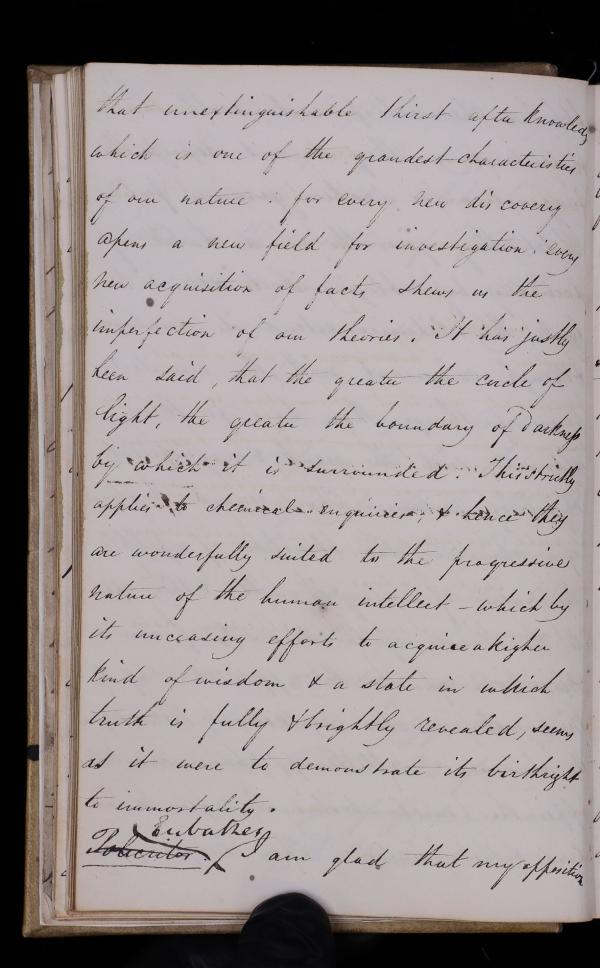 that unextinguishable thirst after knowledg
which is one of the grandest characteristics
of our nature : for every new discovery
opens a new field for investigation : every
new acquisition of facts shews us the
imperfection of our theories. It has justly
been said, that the greater the circle of
light, the greater the boundary of Darkness
by which it is surrounded. This strictly
applies to chemical inquiries, & hence they
are wonderfully suited to the progressive
nature of the human intellect – which by
its unceasing efforts to acquire a higher
kind of wisdom & a state in which
truth is fully & brightly revealed, seems
as it were to demonstrate its birthright
to immortality.
Eubathes
I am glad that my opposition